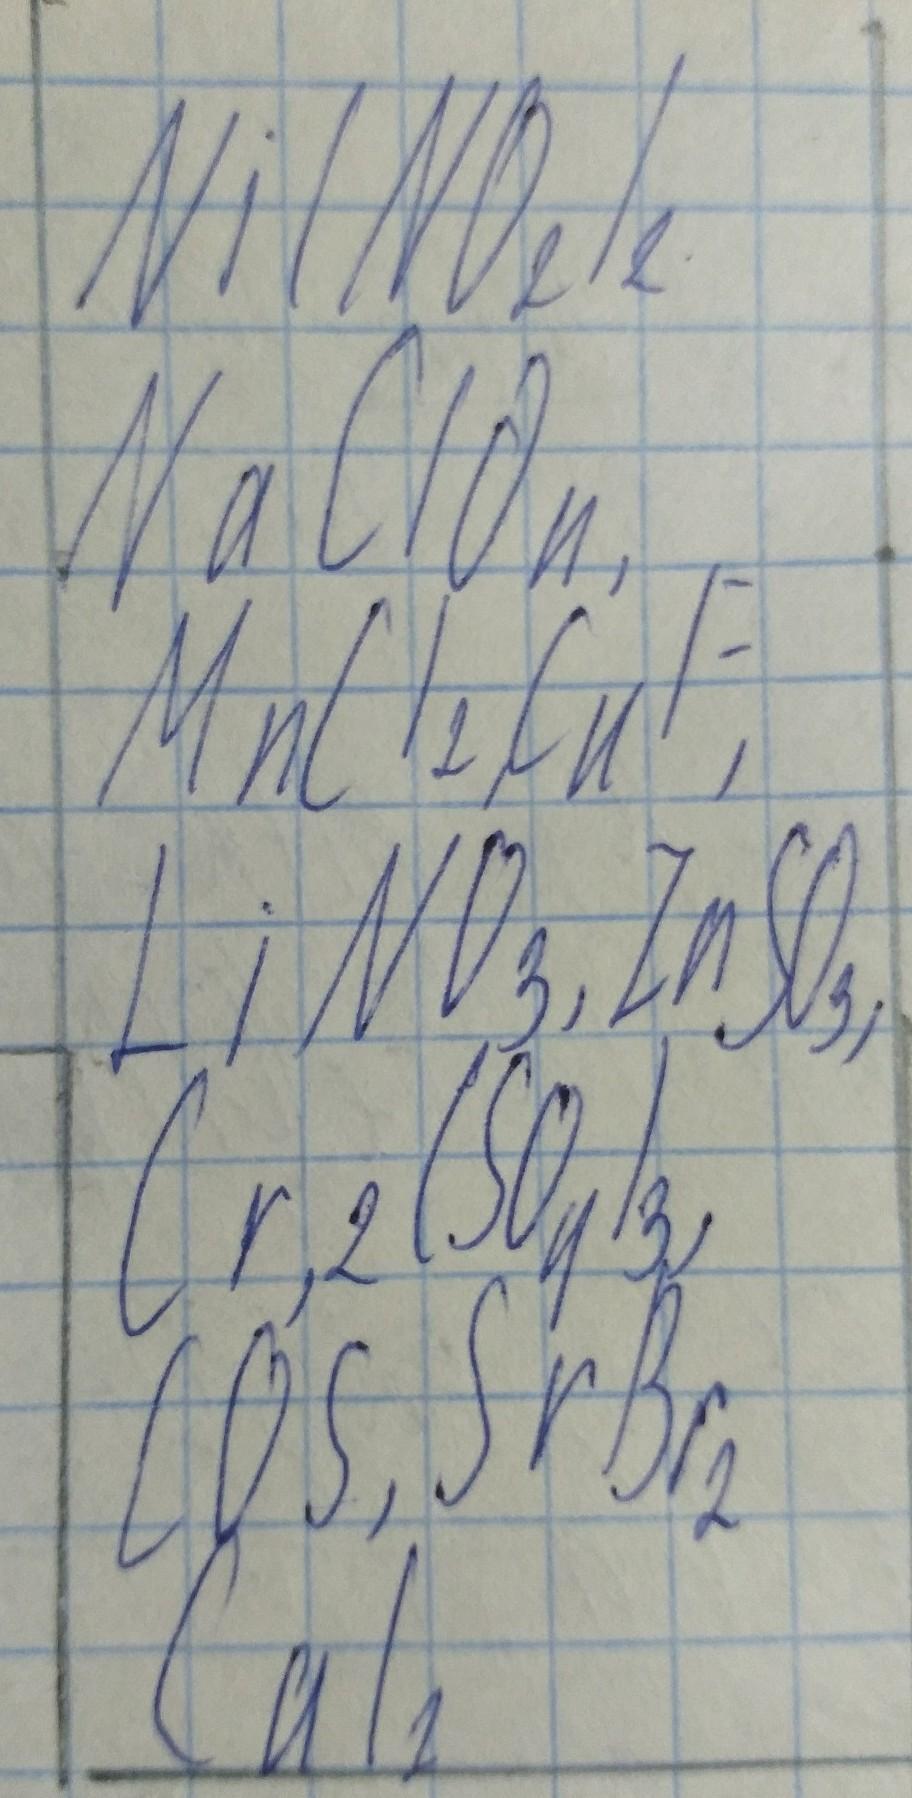 Ni(NO₂)₂
NaClO₄,
MnCl₂, CuF,
LiNO₃, ZnSO₃,
Cr,₂(SO₄)₃,
COS, SrBr₂
CaI₂